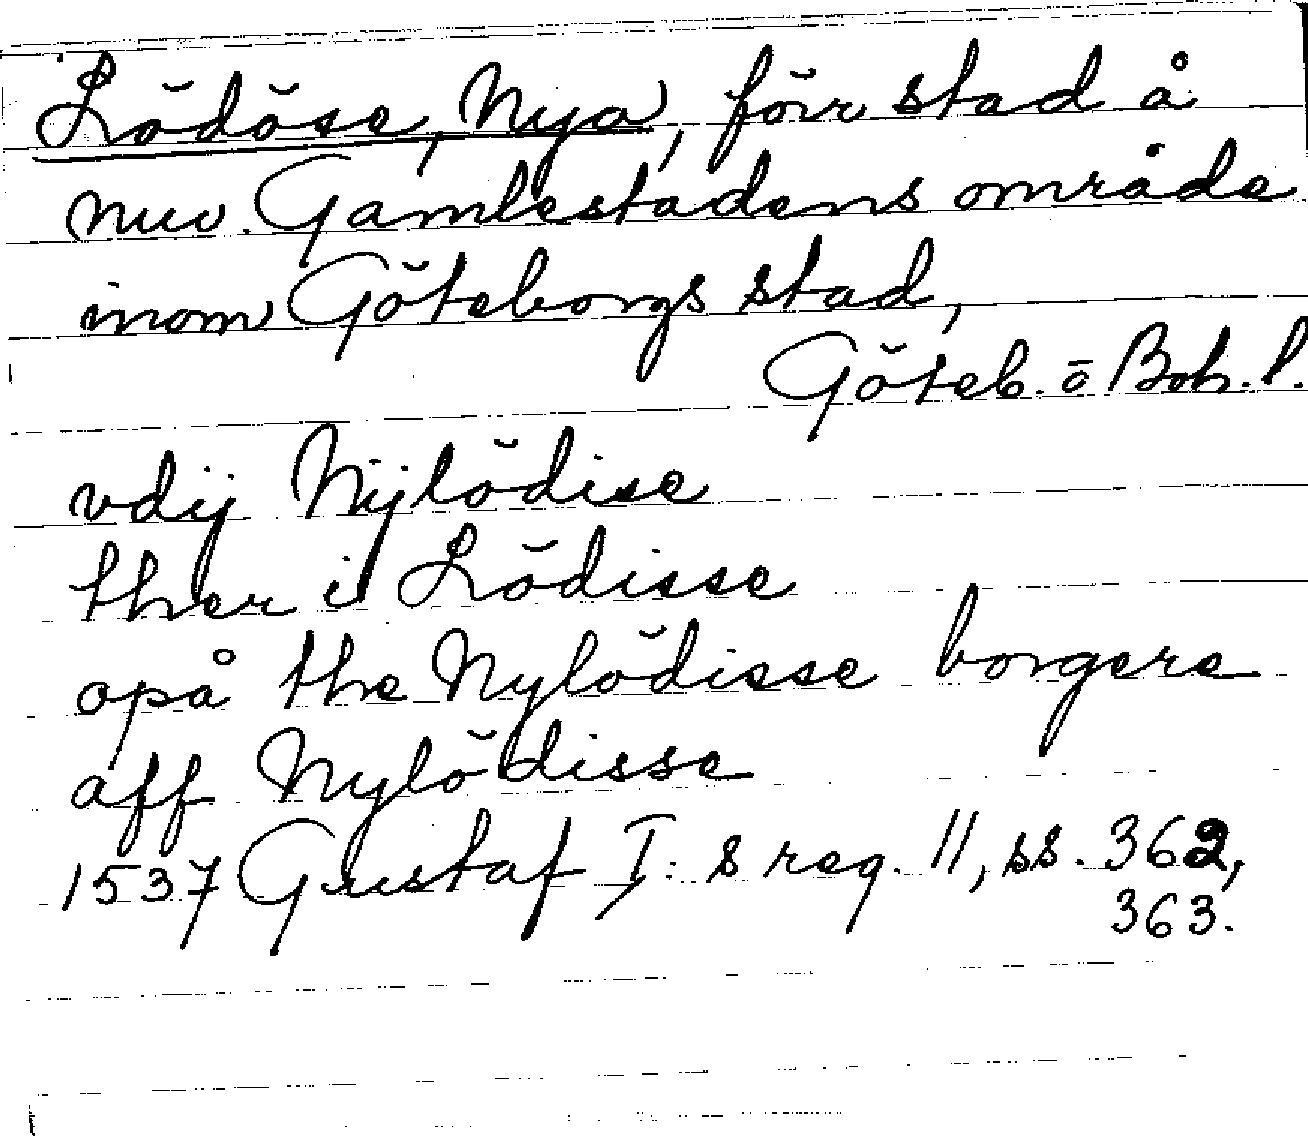 Lödöse, Nya, förr stad å
nuv. Gamlestadens område
inom Göteborgs stad,
Göteb. o Boh. l.
vdij Nijlödise
ther i Lödisse
opå the Nylödisse borgere
aff Nylödisse
1537 Gustaf I: s reg. 11, ss. 362,
363.